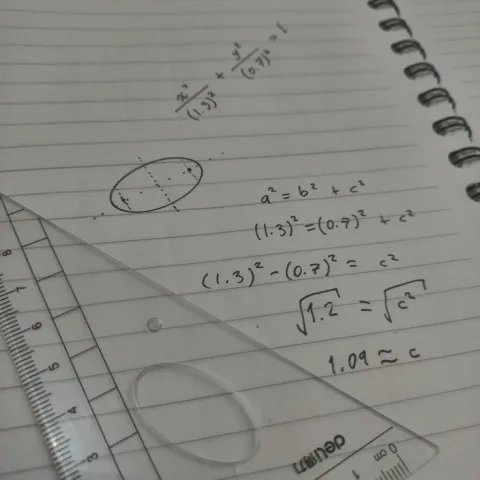 x²/(1.3)² + y²/(0.7)² = 1
a² = b² + c²
(1.3)² = (0.7)² + c²
(1.3)² - (0.7)² = c²
√1.2 = √c²
1.09 ≈ c
8
7
6
5
4
3
deli
0 cm
1